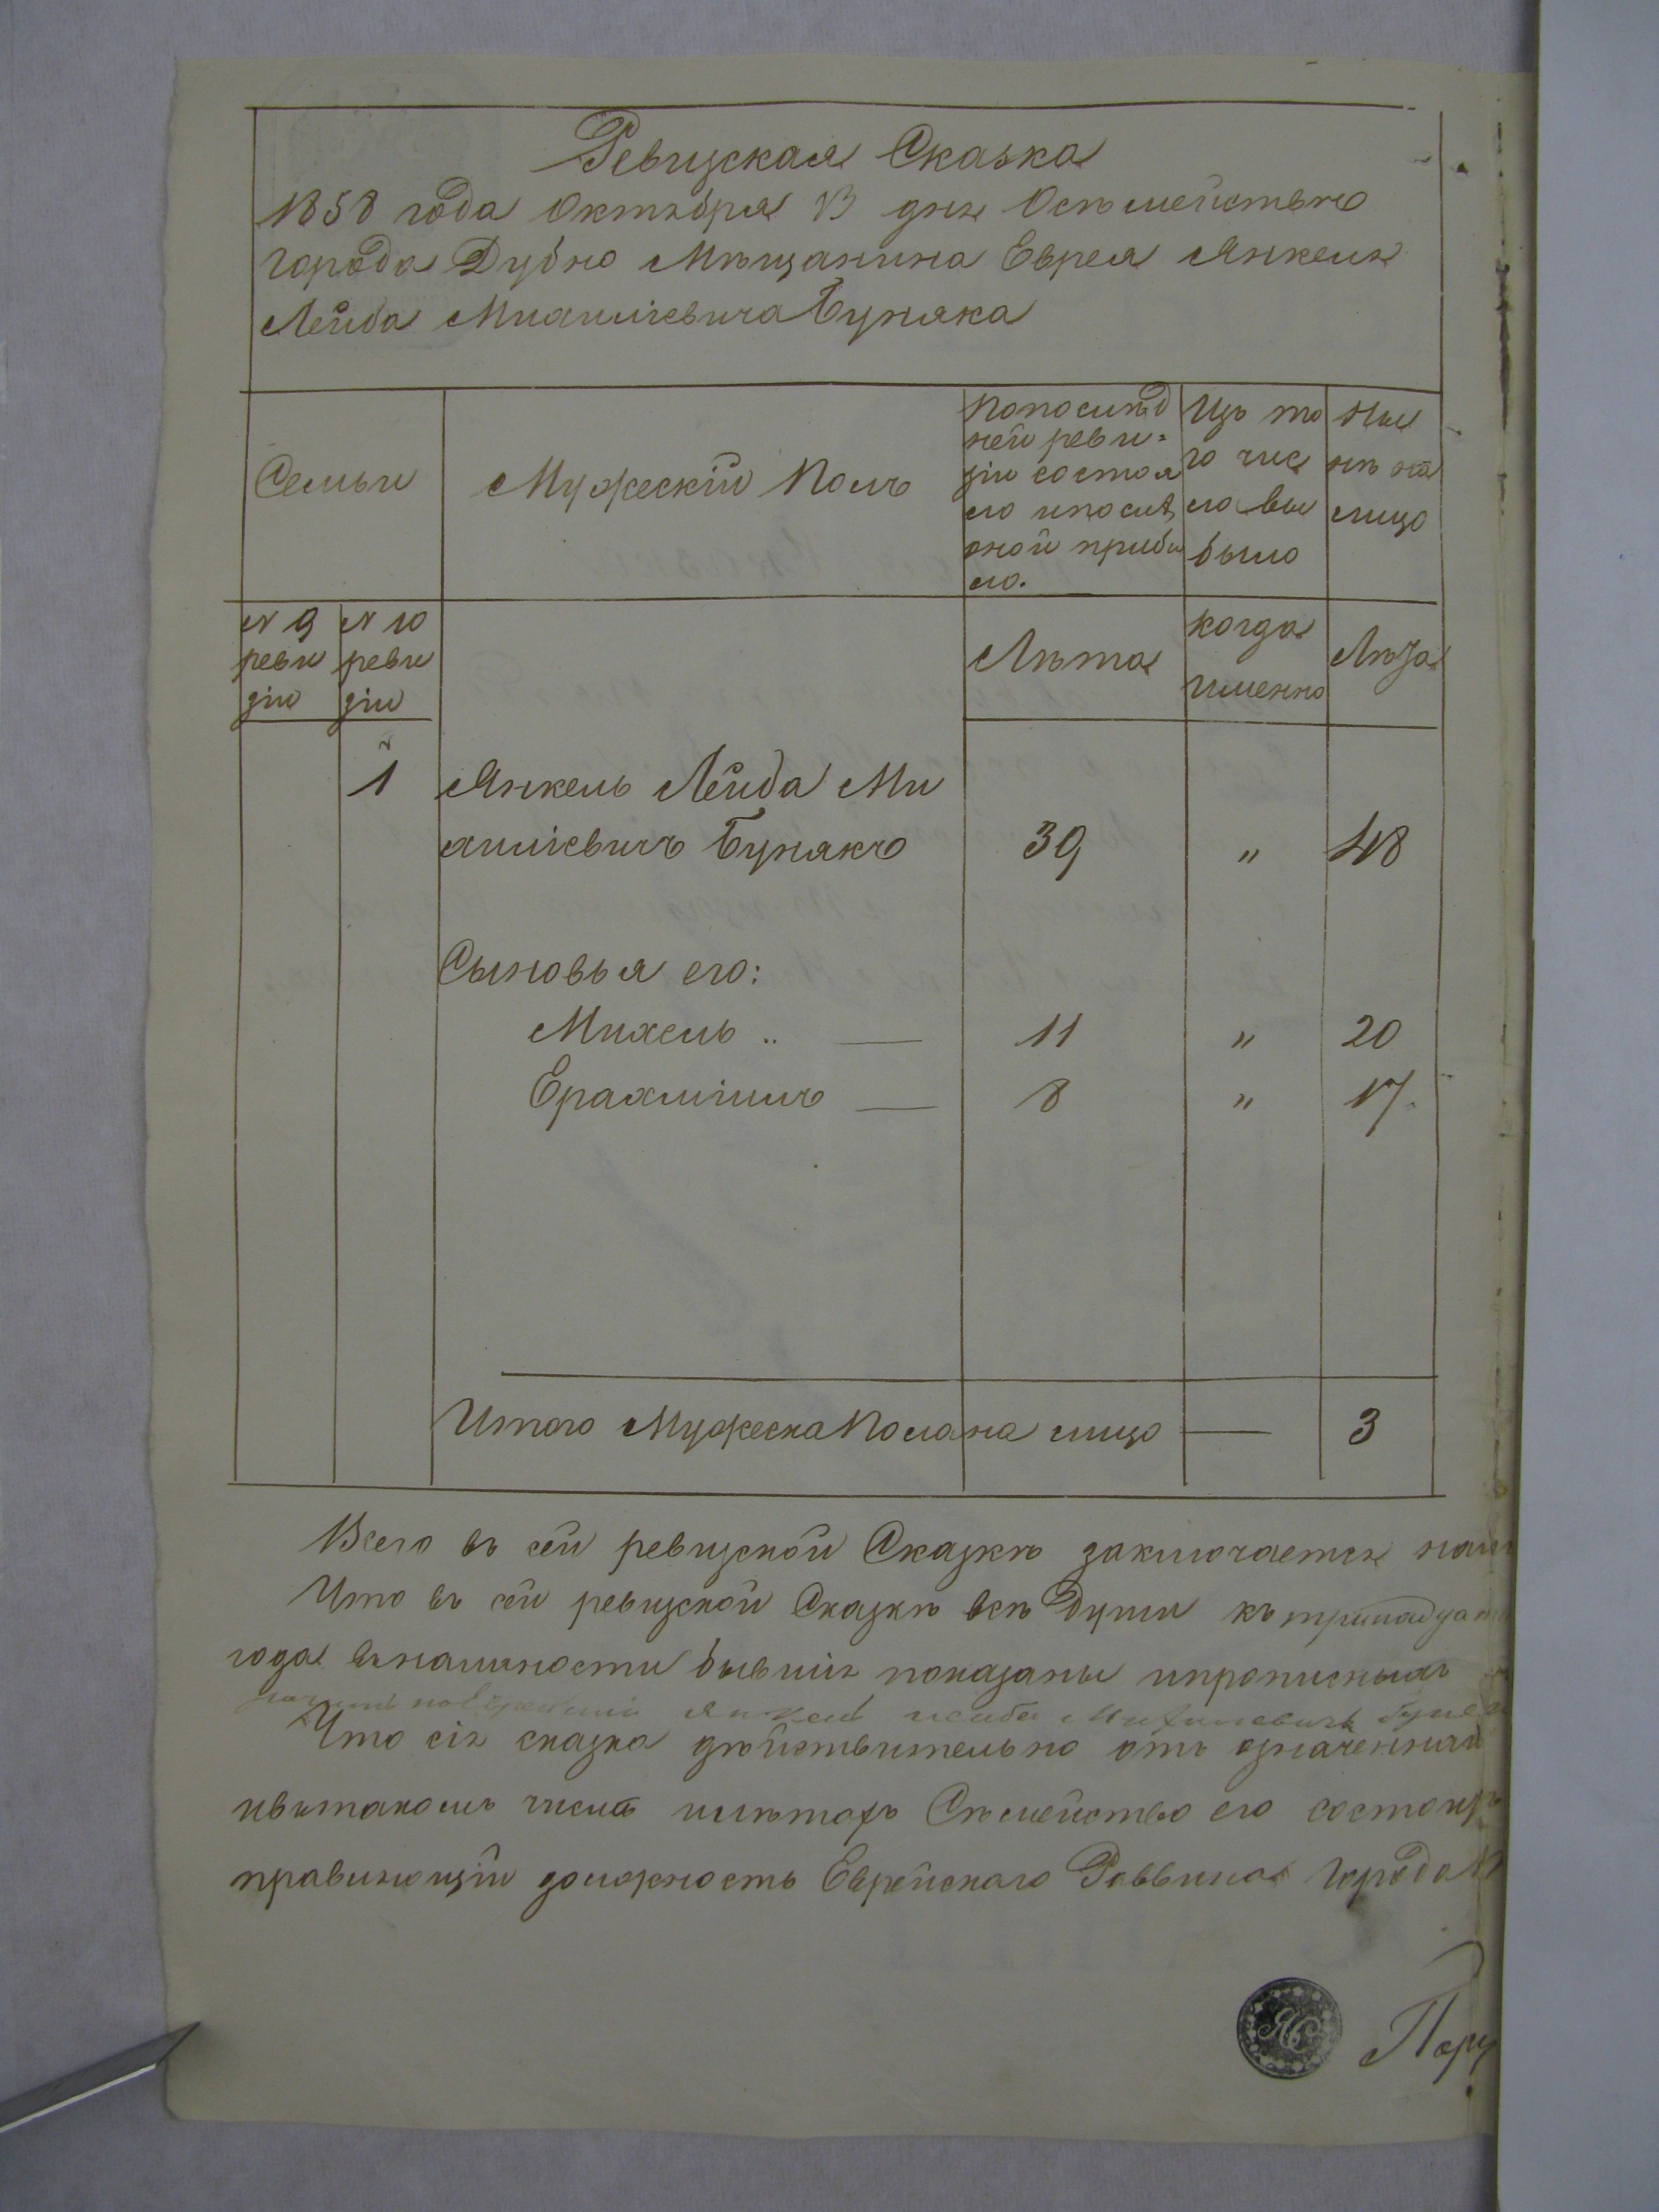 Ревизская Сказка
1858 года Октября 13 дня О семействѣ
города Дубно Мѣщанина Еврея Янкеля
Лейба Михилiевича Буняка
Семьи
Мужескiй Полъ
По послѣд
ней реви=
зiи состоя
ло и послѣ
оной прибы
ло.
Изъ то
го чис
ла вы
было
Ны
нѣ на
лицо
N 9
реви
зiи
N 10
реви
зiи
Лѣта
когда
именно
Лѣта
1 Янкель Лейба Ми
хилiевичъ Бунякъ 39 " 48
Сыновья его:
Михель .. — 11 " 20
Ерахмiилъ — 8 " 17
Итого Мужеска Пола на лицо — 3
Всего въ сей ревизской Сказкѣ заключается
Что въ сей ревизской Сказкѣ всѣ Души къ
года въ наличности бывшiя показаны и прописныхъ
Янкель Лейба Михилевичъ
Что сiя сказка дѣйствительно отъ
и въ такомъ числѣ и лѣтахъ Семейство его
правляющiй должность Еврейскаго Раввина Города
ЯС